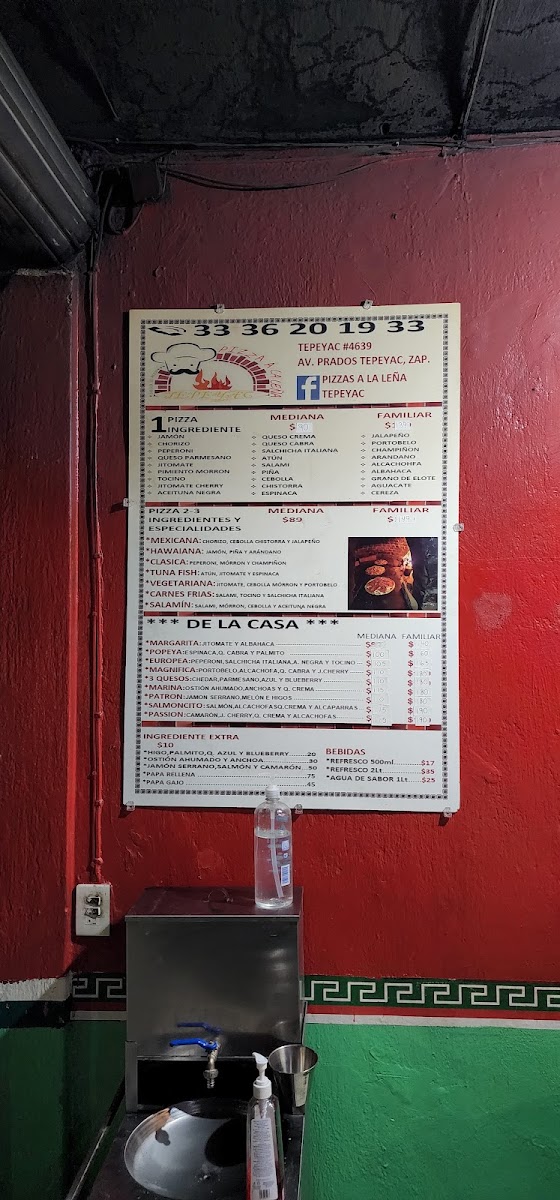 33 36 20 19 33
TEPEYAC #4639
AV. PRADOS TEPEYAC, ZAP.
PIZZA A LA LEÑA
TEPEYAC
f PIZZAS A LA LEÑA
TEPEYAC
1 PIZZA
INGREDIENTE
MEDIANA
$
FAMILIAR
$
JAMÓN
CHORIZO
PEPERONI
QUESO PARMESANO
JITOMATE
PIMIENTO MORRON
TOCINO
JITOMATE CHERRY
ACEITUNA NEGRA
QUESO CREMA
QUESO CABRA
SALCHICHA ITALIANA
ATÚN
SALAMI
PIÑA
CEBOLLA
CHISTORRA
ESPINACA
JALAPEÑO
PORTOBELO
CHAMPIÑON
ARANDANO
ALCACHOHFA
ALBAHACA
GRANO DE ELOTE
AGUACATE
CEREZA
PIZZA 2-3
INGREDIENTES Y
ESPECIALIDADES
MEDIANA
$89
FAMILIAR
$
*MEXICANA: CHORIZO, CEBOLLA CHISTORRA Y JALAPEÑO
*HAWAIANA: JAMÓN, PIÑA Y ARÁNDANO
*CLASICA: PEPERONI, MÓRRON Y CHAMPIÑON
*TUNA FISH: ATÚN, JITOMATE Y ESPINACA
*VEGETARIANA: JITOMATE, CEBOLLA MÓRRON Y PORTOBELO
*CARNES FRIAS: SALAMI, TOCINO Y SALCHICHA ITALIANA
*SALAMÍN: SALAMI, MÓRRON, CEBOLLA Y ACEITUNA NEGRA
*** DE LA CASA ***
MEDIANA FAMILIAR
*MARGARITA: JITOMATE Y ALBAHACA
*POPEYA: ESPINACA, Q. CABRA Y PALMITO
*EUROPEA: PEPERONI, SALCHICHA ITALIANA, A. NEGRA Y TOCINO
*MAGNIFICA: PORTOBELO, ALCACHOFA, Q. CABRA Y J.CHERRY
*3 QUESOS: CHEDAR, PARMESANO, AZUL Y BLUEBERRY
*MARINA: OSTIÓN AHUMADO, ANCHOAS Y Q. CREMA
*PATRON: JAMON SERRANO, MELÓN E HIGOS
*SALMONCITO: SALMÓN, ALCACHOFAS Q.CREMA Y ALCAPARRAS
*PASSION: CAMARÓN, J. CHERRY, Q. CREMA Y ALCACHOFAS
INGREDIENTE EXTRA
$10
*HIGO, PALMITO, Q. AZUL Y BLUEBERRY........20
*OSTIÓN AHUMADO Y ANCHOA...............30
*JAMÓN SERRANO, SALMÓN Y CAMARÓN..50
*PAPA RELLENA...............75
*PAPA GAJO...............45
BEBIDAS
*REFRESCO 500ml..........$17
*REFRESCO 2Lt...............$35
*AGUA DE SABOR 1Lt....$25